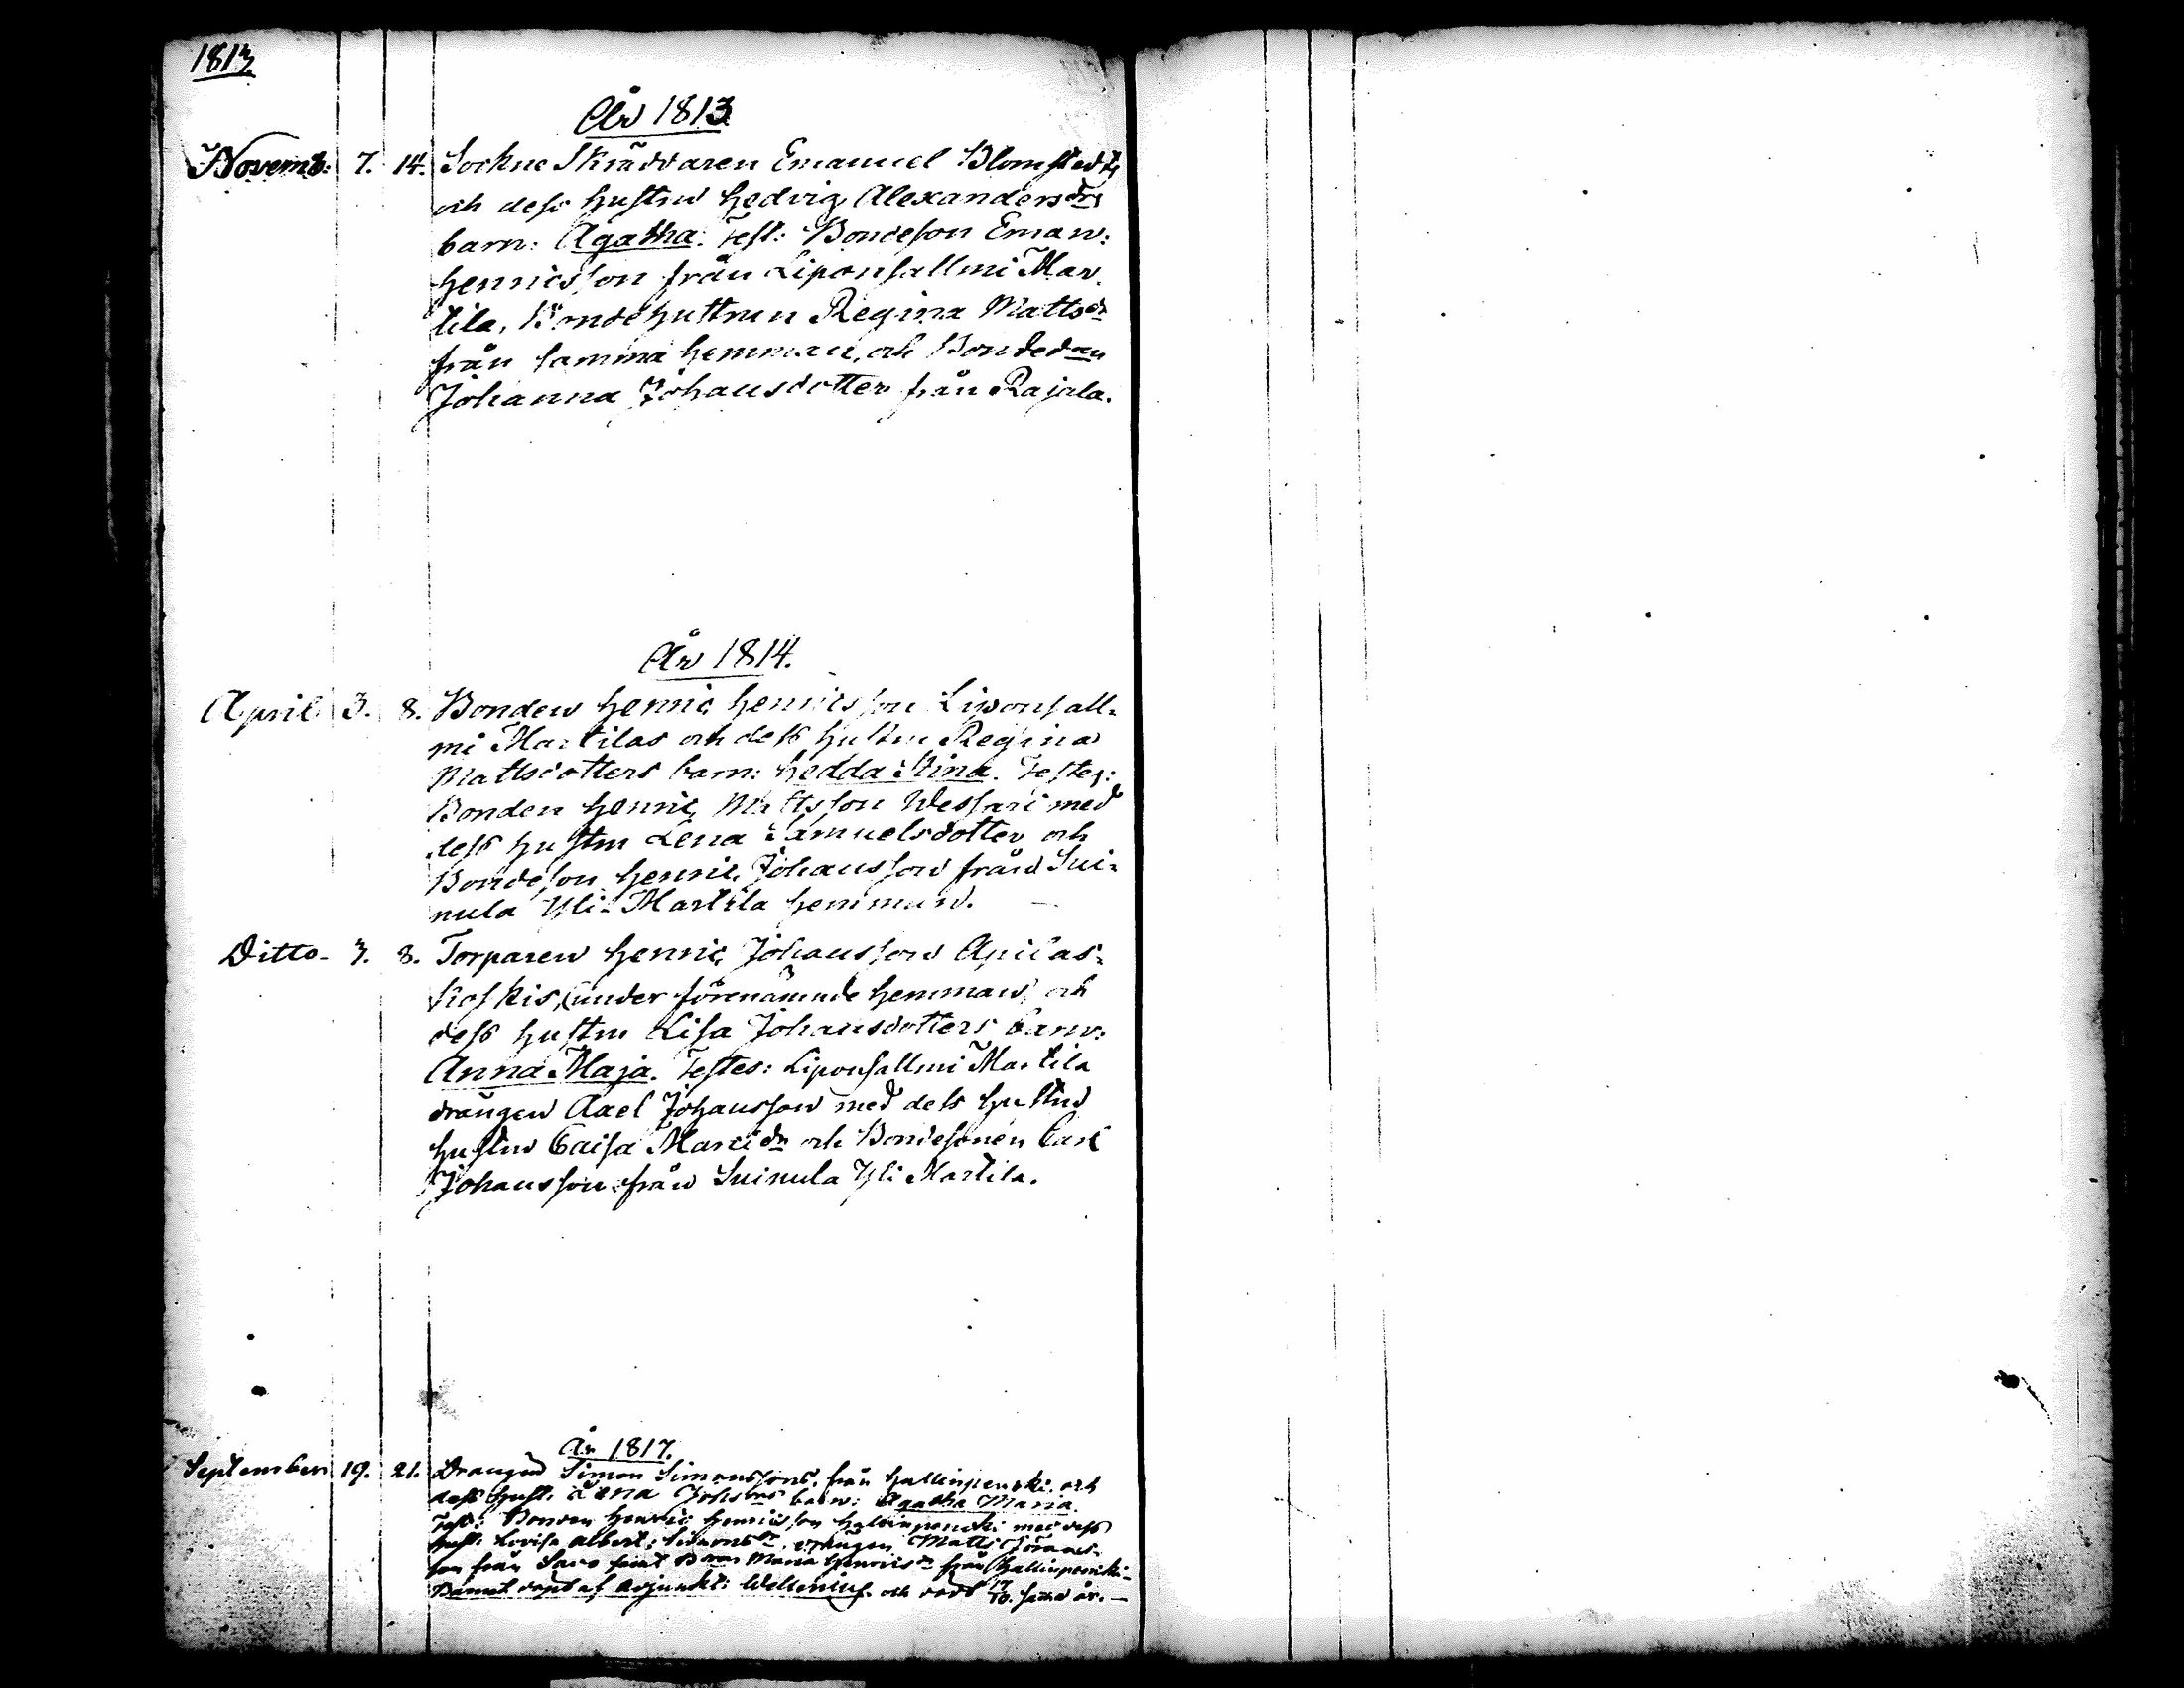 1813.
År 1813
Novemb: 7. 14. Sockne Skräddaren Emanuel Blomstedts
och dess hustru Hedvig Alexandersdrs
barn: Agatha. Test: Bondeson Eman:
Henricsson från Liponsallmi Mar-
tila, Bondehustrun Regina Mattsdr
från samma hemman, och Bondedn
Johanna Johansdotter från Rajala.
År 1814.
April 3. 8. Bonden Henric Henricsson Liponsall-
mi Martilas och dess hustru Regina
Mattsdotters barn: Hedda Stina. Testes:
Bonden Henric Mattsson Wessari med
dess hustru Lena Samuelsdotter och
Bondeson Henric Johansson från Sui-
nula Yli-Martila hemman. —
Ditto- 3. 8. Torparen Henric Johansson Apilas-
koskis, (under förenämnde hemman) och
dess hustru Lisa Johansdotters barn:
Anna Maja. Testes: Liponsallmi Martila
drängen Axel Johansson med dess hustru
hustru Caisa Marcidr och Bondesonen Carl
Johansson från Suinula Yli Martila.
År 1817.
September 19. 21. Drängen Simon Simonssons, från Hallinpenski, och
dess hust. Lena Johsdrs barn: Agatha Maria.
Test: Bonden Henric Henricsson Hallinpenski med dess
hust. Lovisa Albert: Simonsdr, drängen Matts Görans-
son från Savo samt Maria Henricsdr från Hallinpenski-
Barnet döpt af Adjunkt: Wellenius. och dödt 17/10. samma år. —